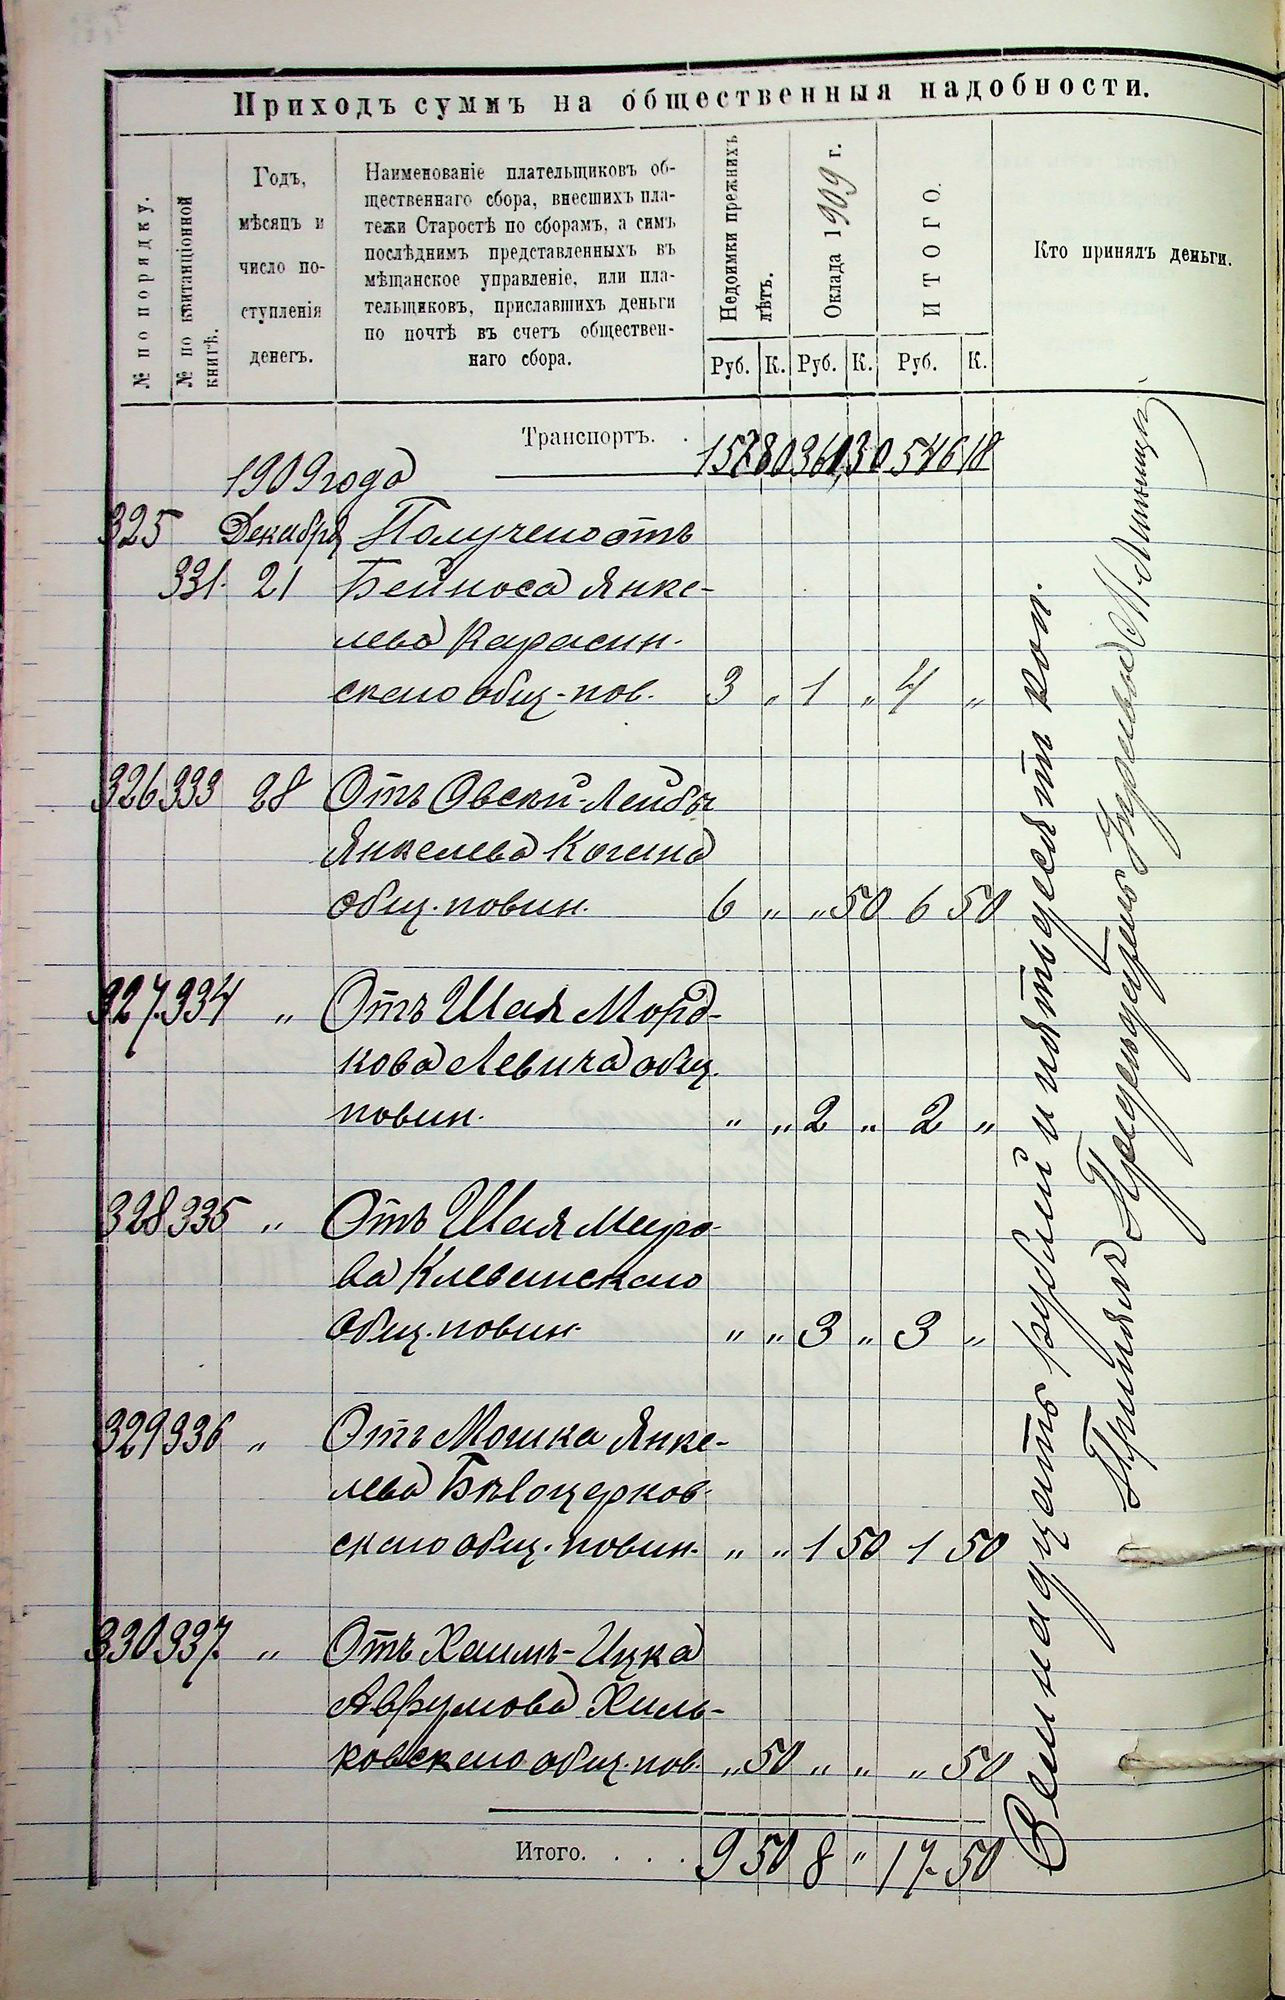 Приходъ суммъ на общественныя надобности.
№ по порядку.
№ по квитанціонной
книгѣ.
Годъ,
мѣсяцъ и
число по-
ступленія
денегъ.
Наименованіе плательщиковъ об-
щественнаго сбора, внесшихъ пла-
тежи Старостѣ по сборамъ, а симъ
послѣднимъ представленныхъ въ
мѣщанское управленіе, или пла-
тельщиковъ, приславшихъ деньги
по почтѣ въ счетъ обществен-
наго сбора.
Недоимки прежнихъ
лѣтъ.
Оклада 1909 г.
ИТОГО.
Кто принялъ деньги.
Руб. К. Руб. К. Руб. К.
Транспортъ. . 546 18
1909 года
325 Декабря Получено отъ
331. 21 Бейноса Янке-
лева Карасин-
скаго общ. пов. 3 „ 1 „ 4 „
326 333 28 Отъ Овсей-Лейбы
Янкелева Когана
общ. повин. 6 „ „ 50 6 50
327. 334 „ Отъ Шая Морд-
кова Левича общ.
повин. „ „ 2 „ 2 „
328 335 „ Отъ Шая Меро-
ва Клебанскаго
общ. повин. „ „ 3 „ 3 „
329 336 „ Отъ Мошка Янке-
лева Бѣлоцерков-
скаго общ. повин. „ „ 1 50 1 50
330 337. „ Отъ Хаимъ-Ицка
Аврумова Хиль-
ковскаго общ. пов. „ 50 „ „ „ 50
Итого. . . . 9 50 8 „ 17. 50
Семнадцать рублей и пятьдесят коп.
Принялъ